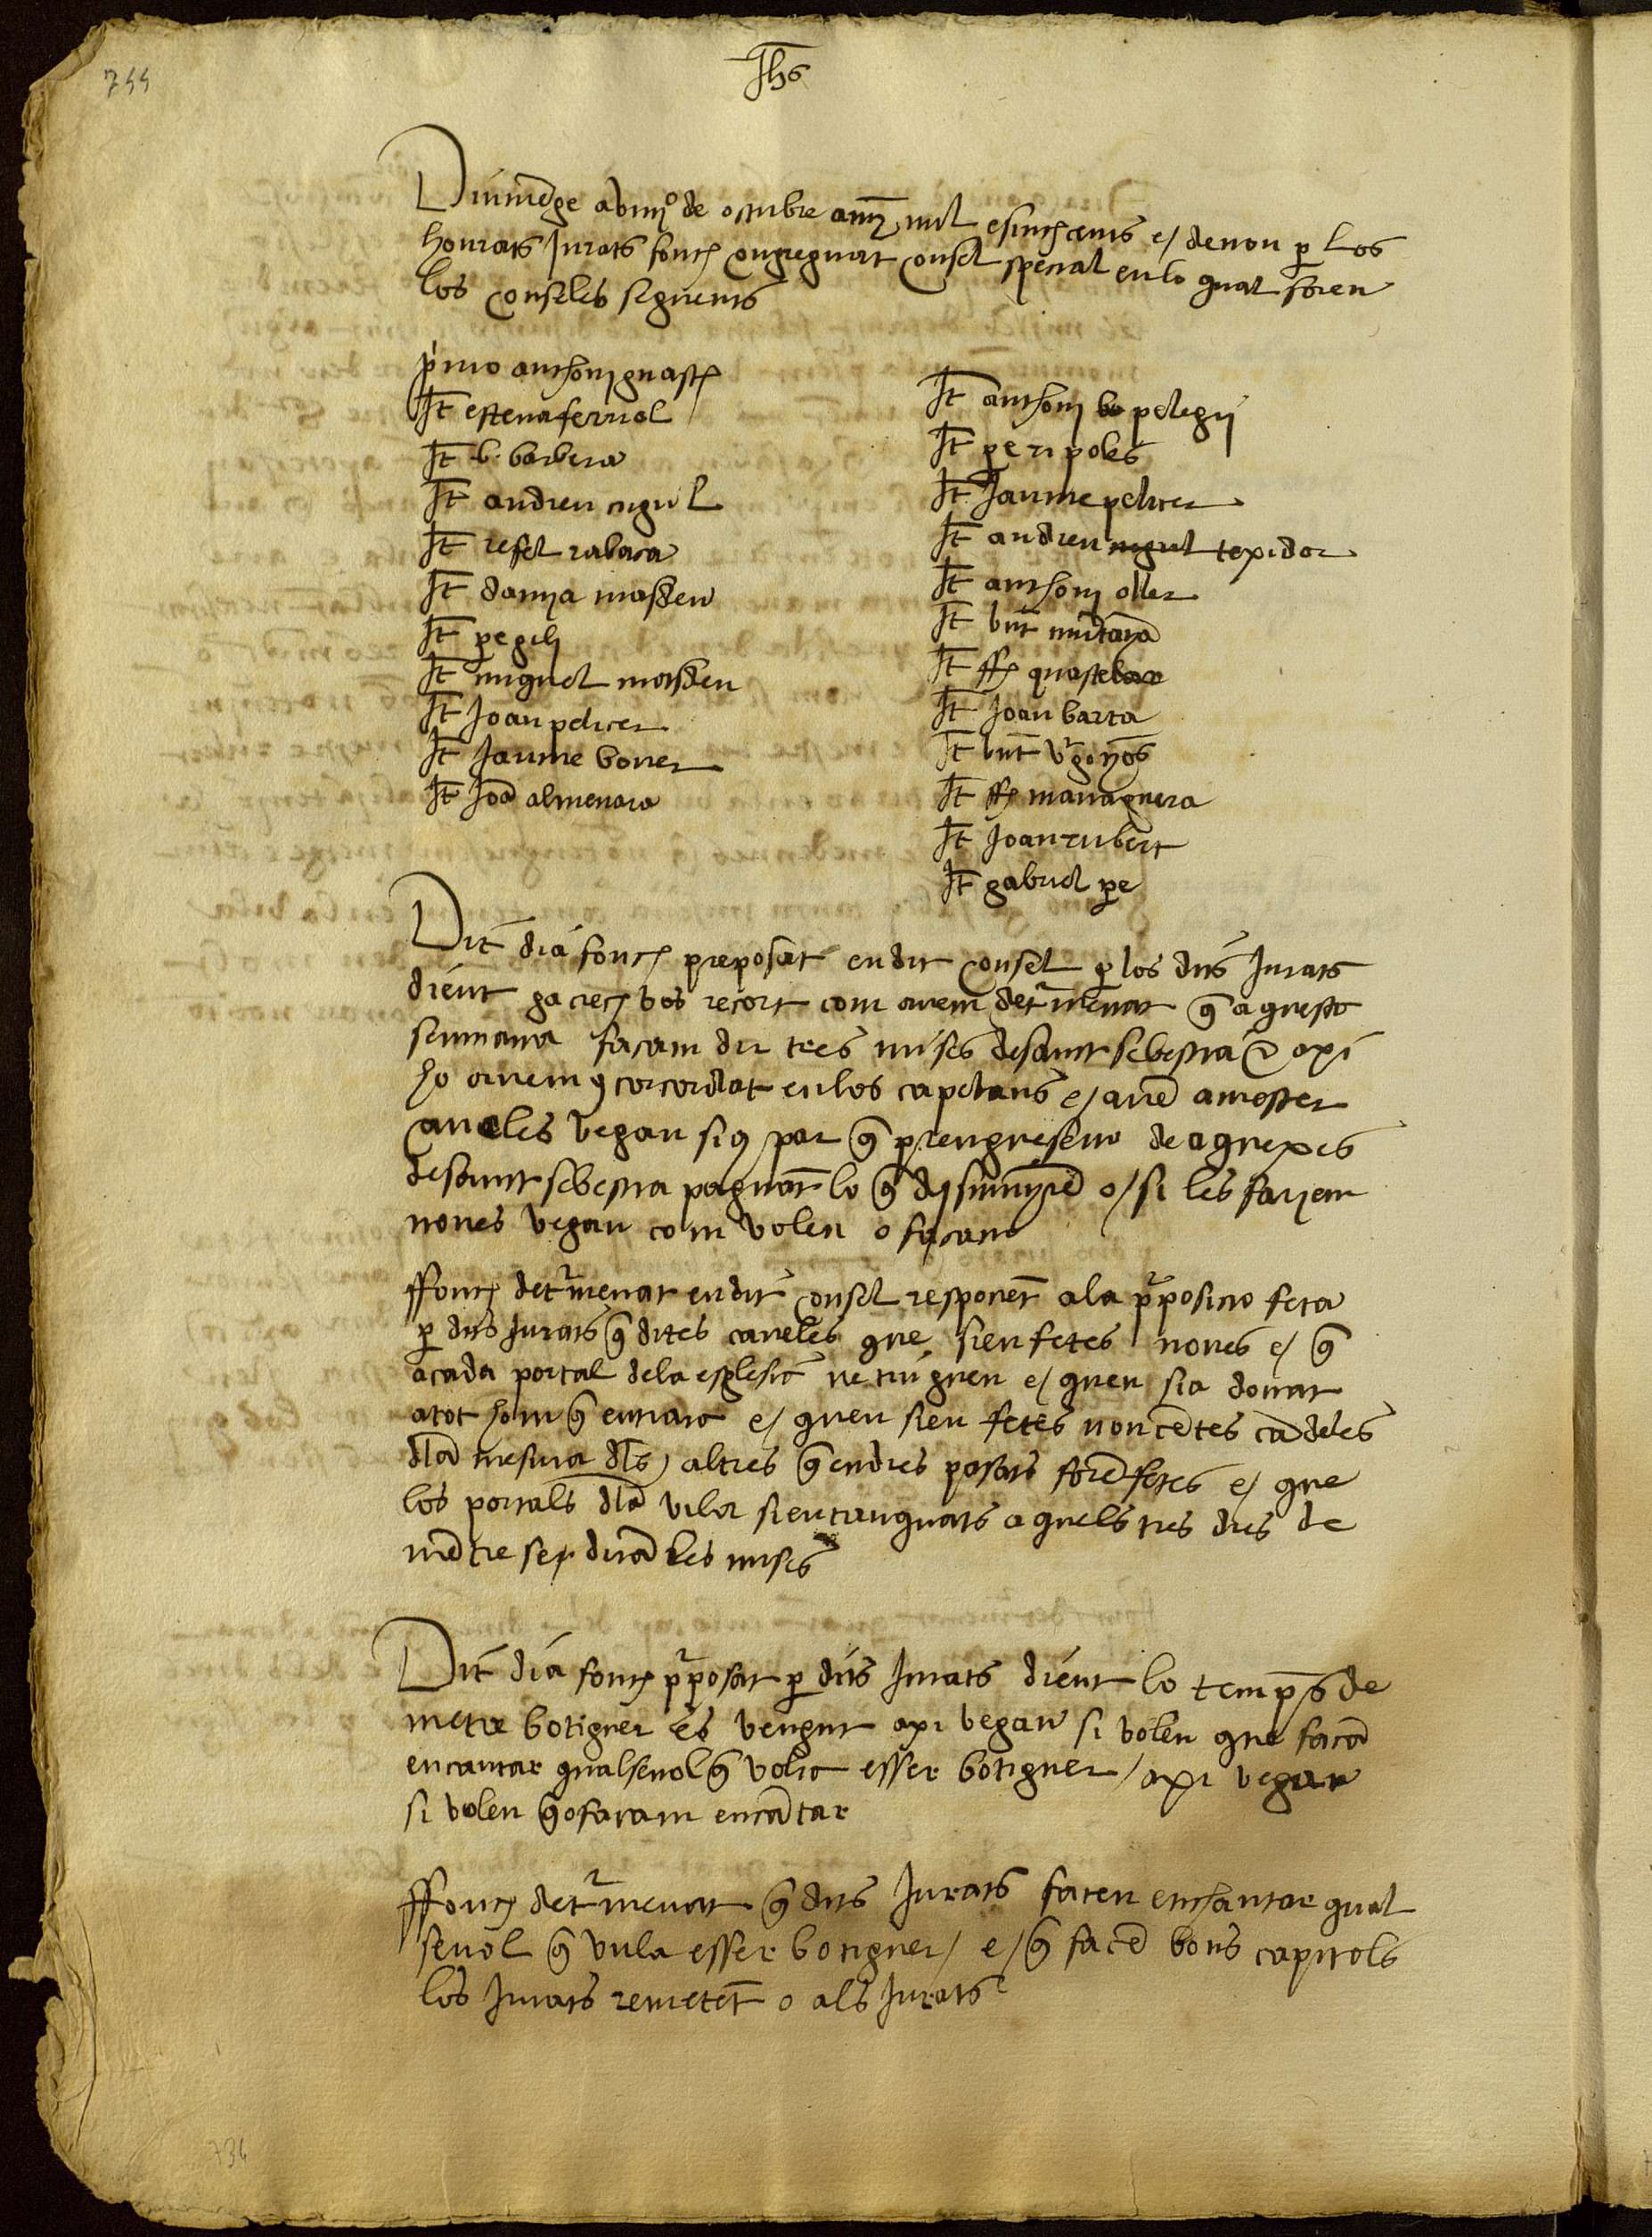 744
Jhs
Diumēge a viiijº de octubre añy mil e sinchcents e/ de nou p los
honrats Jurats fonch congreguat consel special en lo qual foren
los conseles seguents
primo anthonj guasch
It esteva ferriol
It b. barbera
It andreu cugul
It refel rabaca
It damia masdeu
It pe gilj
It miguel masdeu
It Joan pelicer
It Jaume boner
It Joā almenara
It anthonj pelegrj
It pe ripoles
It Jaume pelicer
It andreu texidor
It anthonj oller
It bnt mūtanā
It ffh
It Joan barta
It bnt vrgoyos
It ffh managuera
It Joan rubert
It gabriel pe
Dit dia fonch preposat en dit consel p los dits Jurats
dient ja crech vos recort com avem detrmenat q̄ aquesta
semmana facam dir tres mises de sanct sebestia & axi
ho avem concorcordat en los capelans e/ avē a mester
caneles vegan si us par q̄ prengueseno de aquexes
de sanct sebestia paguāt lo q̄ djsminuyrē o/ si les farjem
noves vegan com volen o facam
ffonch detrmenat en dit consel responēt a la prposicio feta
p dits Jurats q̄ dites caneles que sien fetes noves e/ q̄
a cada portal de la esglesia ne tinguen e/ quen sia donat
a tot hom q̄ entrara e/ quen sien fetes noucētes cādeles
dlā mesura dls altres q̄ en dies pasats forē fetes e/ que
los portals dlā vila sien tanquats aquels tres dies de
mētre ses dirā les mises
Dit dia fonch prposat p dits Jurats dient lo temps de
metre botiguer es vengut axi vegan si volen que facā
encantar qualsevol q̄ volia esser botiguer / axi vegan
si volen q̄ o facam encātar
ffonch detrmenat q̄ dits Jurats facen enchantar qual
sevol q̄ vula esser botiguer / e/ q̄ facē bons capitols
los Jurats remetēt o als Jurats
734